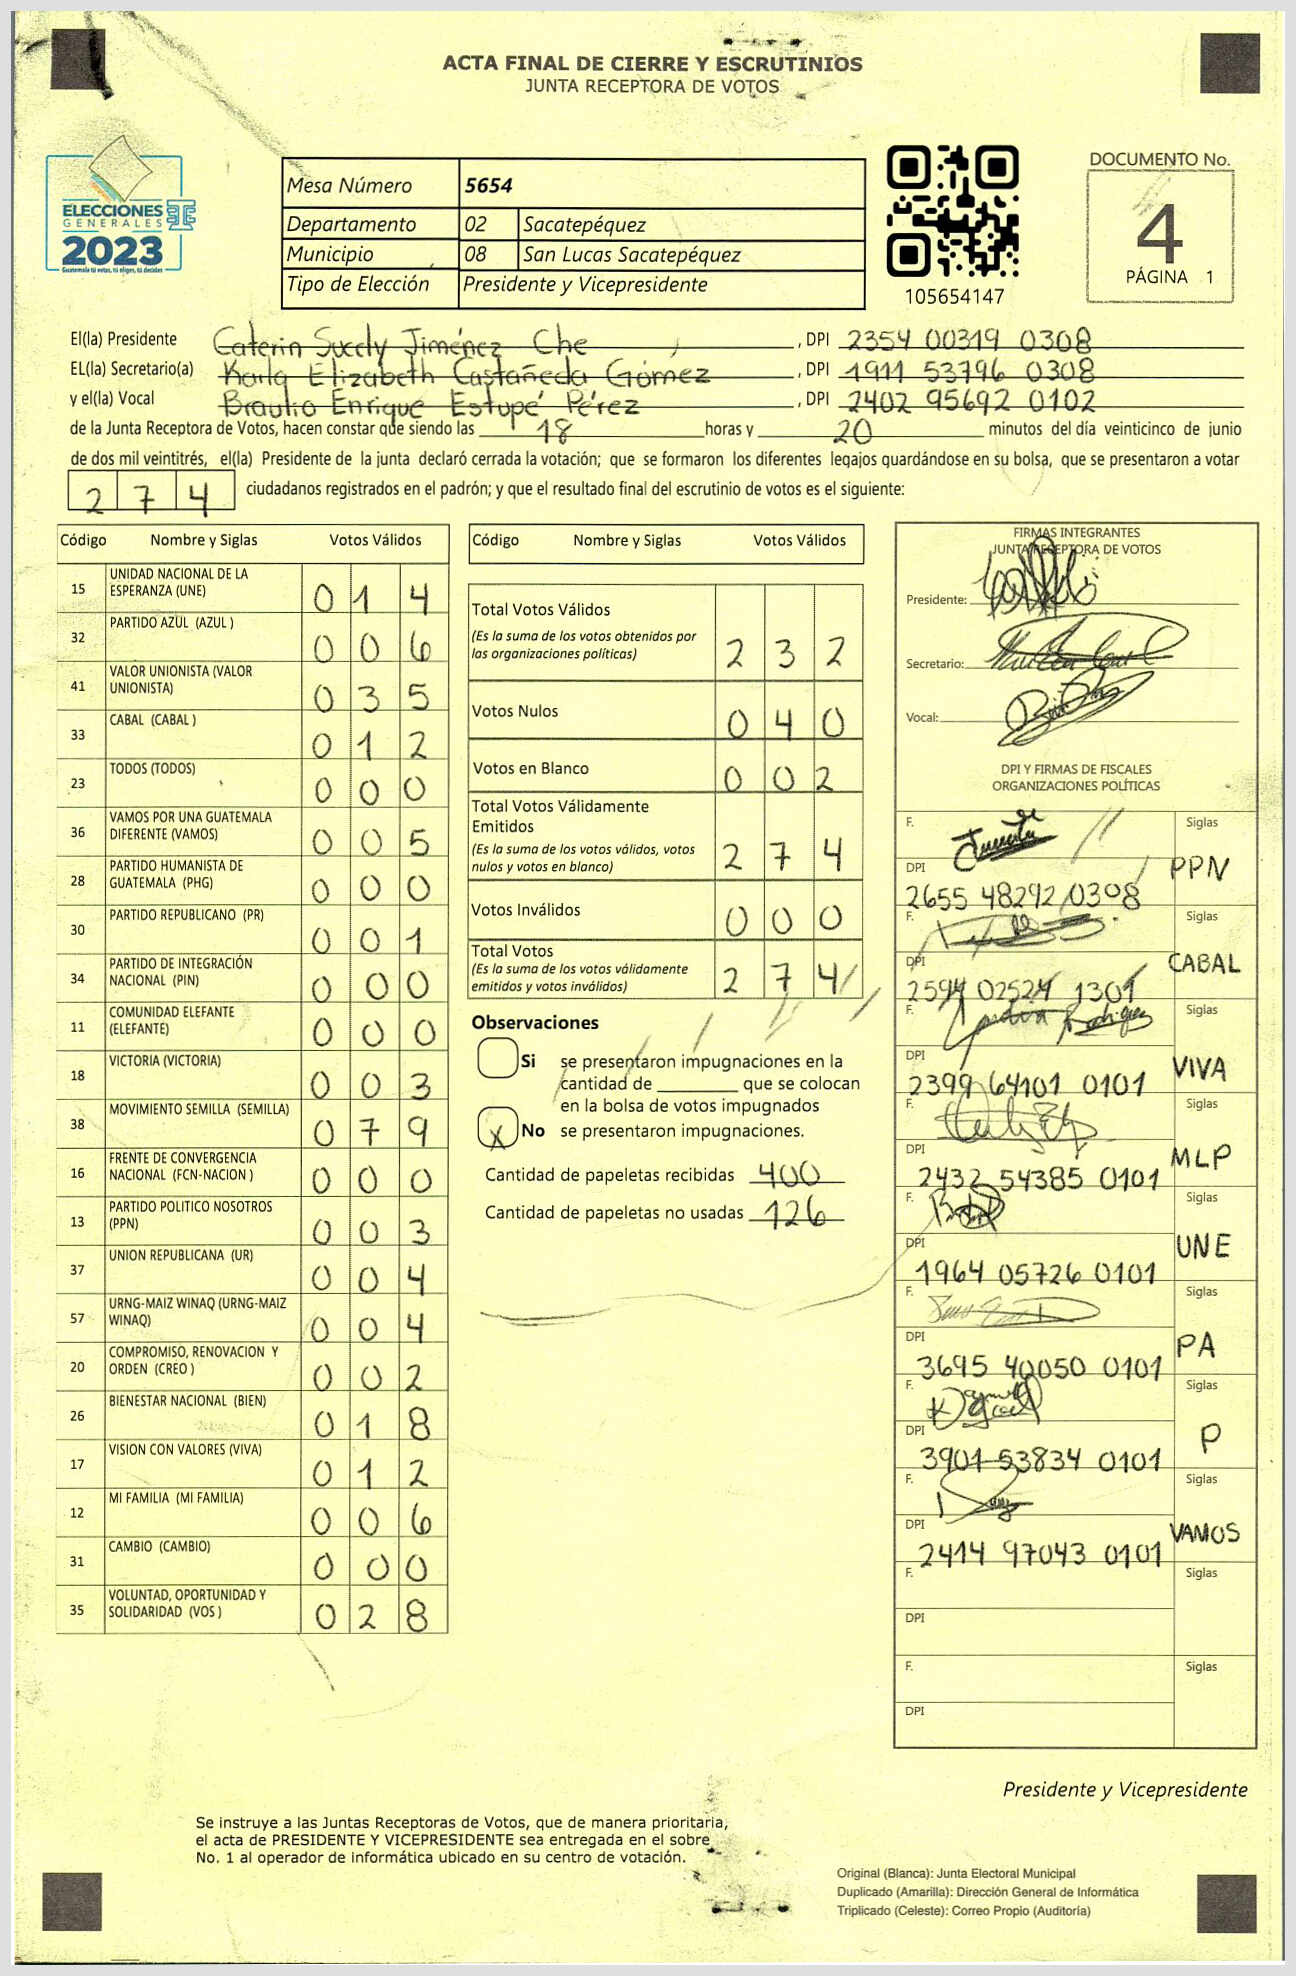 ACTA FINAL DE CIERRE Y ESCRUTINIOS
JUNTA RECEPTORA DE VOTOS
ELECCIONES
GENERALES
2023
Guatemala tú votas, tú eliges, tú decides
Mesa Número 5654
Departamento 02 Sacatepéquez
Municipio 08 San Lucas Sacatepéquez
Tipo de Elección Presidente y Vicepresidente
105654147
DOCUMENTO No.
4
PÁGINA 1
El(la) Presidente Caterin Sucely Jiménez Che, DPI 2354 00319 0308
EL(la) Secretario(a) Karla Elizabeth Castañeda Gómez, DPI 1911 53796 0308
y el(la) Vocal Braulio Enrique Estupé Pérez, DPI 2402 95692 0102
de la Junta Receptora de Votos, hacen constar que siendo las 18 horas y 20 minutos del día veinticinco de junio
de dos mil veintitrés, el(la) Presidente de la junta declaró cerrada la votación; que se formaron los diferentes legajos guardándose en su bolsa, que se presentaron a votar
274 ciudadanos registrados en el padrón; y que el resultado final del escrutinio de votos es el siguiente:
Código Nombre y Siglas Votos Válidos
15 UNIDAD NACIONAL DE LA ESPERANZA (UNE) 014
32 PARTIDO AZUL (AZUL ) 006
41 VALOR UNIONISTA (VALOR UNIONISTA) 035
33 CABAL (CABAL ) 012
23 TODOS (TODOS) 000
36 VAMOS POR UNA GUATEMALA DIFERENTE (VAMOS) 005
28 PARTIDO HUMANISTA DE GUATEMALA (PHG) 000
30 PARTIDO REPUBLICANO (PR) 001
34 PARTIDO DE INTEGRACIÓN NACIONAL (PIN) 000
11 COMUNIDAD ELEFANTE (ELEFANTE) 000
18 VICTORIA (VICTORIA) 003
38 MOVIMIENTO SEMILLA (SEMILLA) 079
16 FRENTE DE CONVERGENCIA NACIONAL (FCN-NACION ) 000
13 PARTIDO POLITICO NOSOTROS (PPN) 003
37 UNION REPUBLICANA (UR) 004
57 URNG-MAIZ WINAQ (URNG-MAIZ WINAQ) 004
20 COMPROMISO, RENOVACION Y ORDEN (CREO ) 002
26 BIENESTAR NACIONAL (BIEN) 018
17 VISION CON VALORES (VIVA) 012
12 MI FAMILIA (MI FAMILIA) 006
31 CAMBIO (CAMBIO) 000
35 VOLUNTAD, OPORTUNIDAD Y SOLIDARIDAD (VOS ) 028
Código Nombre y Siglas Votos Válidos
Total Votos Válidos 232
(Es la suma de los votos obtenidos por
las organizaciones políticas)
Votos Nulos 040
Votos en Blanco 002
Total Votos Válidamente
Emitidos 274
(Es la suma de los votos válidos, votos
nulos y votos en blanco)
Votos Inválidos 000
Total Votos 274
(Es la suma de los votos válidamente
emitidos y votos inválidos)
Observaciones
Si se presentaron impugnaciones en la
cantidad de ________ que se colocan
en la bolsa de votos impugnados
X No se presentaron impugnaciones.
Cantidad de papeletas recibidas 400
Cantidad de papeletas no usadas 126
FIRMAS INTEGRANTES
JUNTA RECEPTORA DE VOTOS
Presidente:
Secretario:
Vocal:
DPI Y FIRMAS DE FISCALES
ORGANIZACIONES POLÍTICAS
F. Siglas PPN
DPI 2655 48292 0308
F. Siglas CABAL
DPI 2594 02524 1301
F. Siglas VIVA
DPI 2399 64101 0101
F. Siglas MLP
DPI 2432 54385 0101
F. Siglas UNE
DPI 1964 05726 0101
F. Siglas PA
DPI 3695 40050 0101
F. Siglas P
DPI 3901 53834 0101
F. Siglas VAMOS
DPI 2414 97043 0101
F. Siglas
DPI
F. Siglas
DPI
Presidente y Vicepresidente
Se instruye a las Juntas Receptoras de Votos, que de manera prioritaria,
el acta de PRESIDENTE Y VICEPRESIDENTE sea entregada en el sobre
No. 1 al operador de informática ubicado en su centro de votación.
Original (Blanca): Junta Electoral Municipal
Duplicado (Amarilla): Dirección General de Informática
Triplicado (Celeste): Correo Propio (Auditoría)